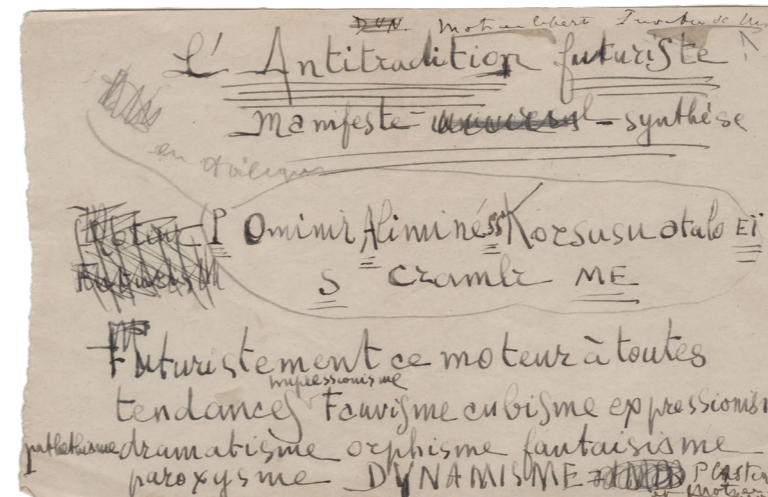 DYN. Mots en liberté Invention de
L'Antitradition futuriste
Manifeste - synthèse
en oblique
P Ominir AliminéssKorsusu otalo EÏ
S cramlr ME
Futuristement ce moteur à toutes
impressionisme
tendances Fauvisme cubisme expressionis
pathétisme dramatisme orphisme fantaisisme
paroxysme DYNAMISME PLastiq